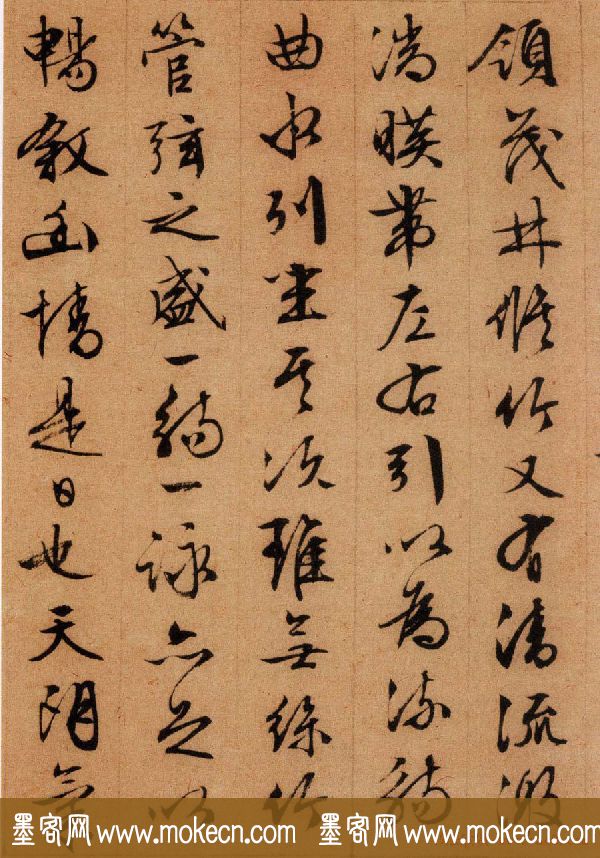 領茂林脩竹又有清流激
湍暎帶左右引以為流觴
曲水列坐其次雖無絲竹
管弦之盛一觴一詠亦足以
暢敘幽情是日也天朗氣
墨客网www.mokecn.com 墨客网www.mokecn.com